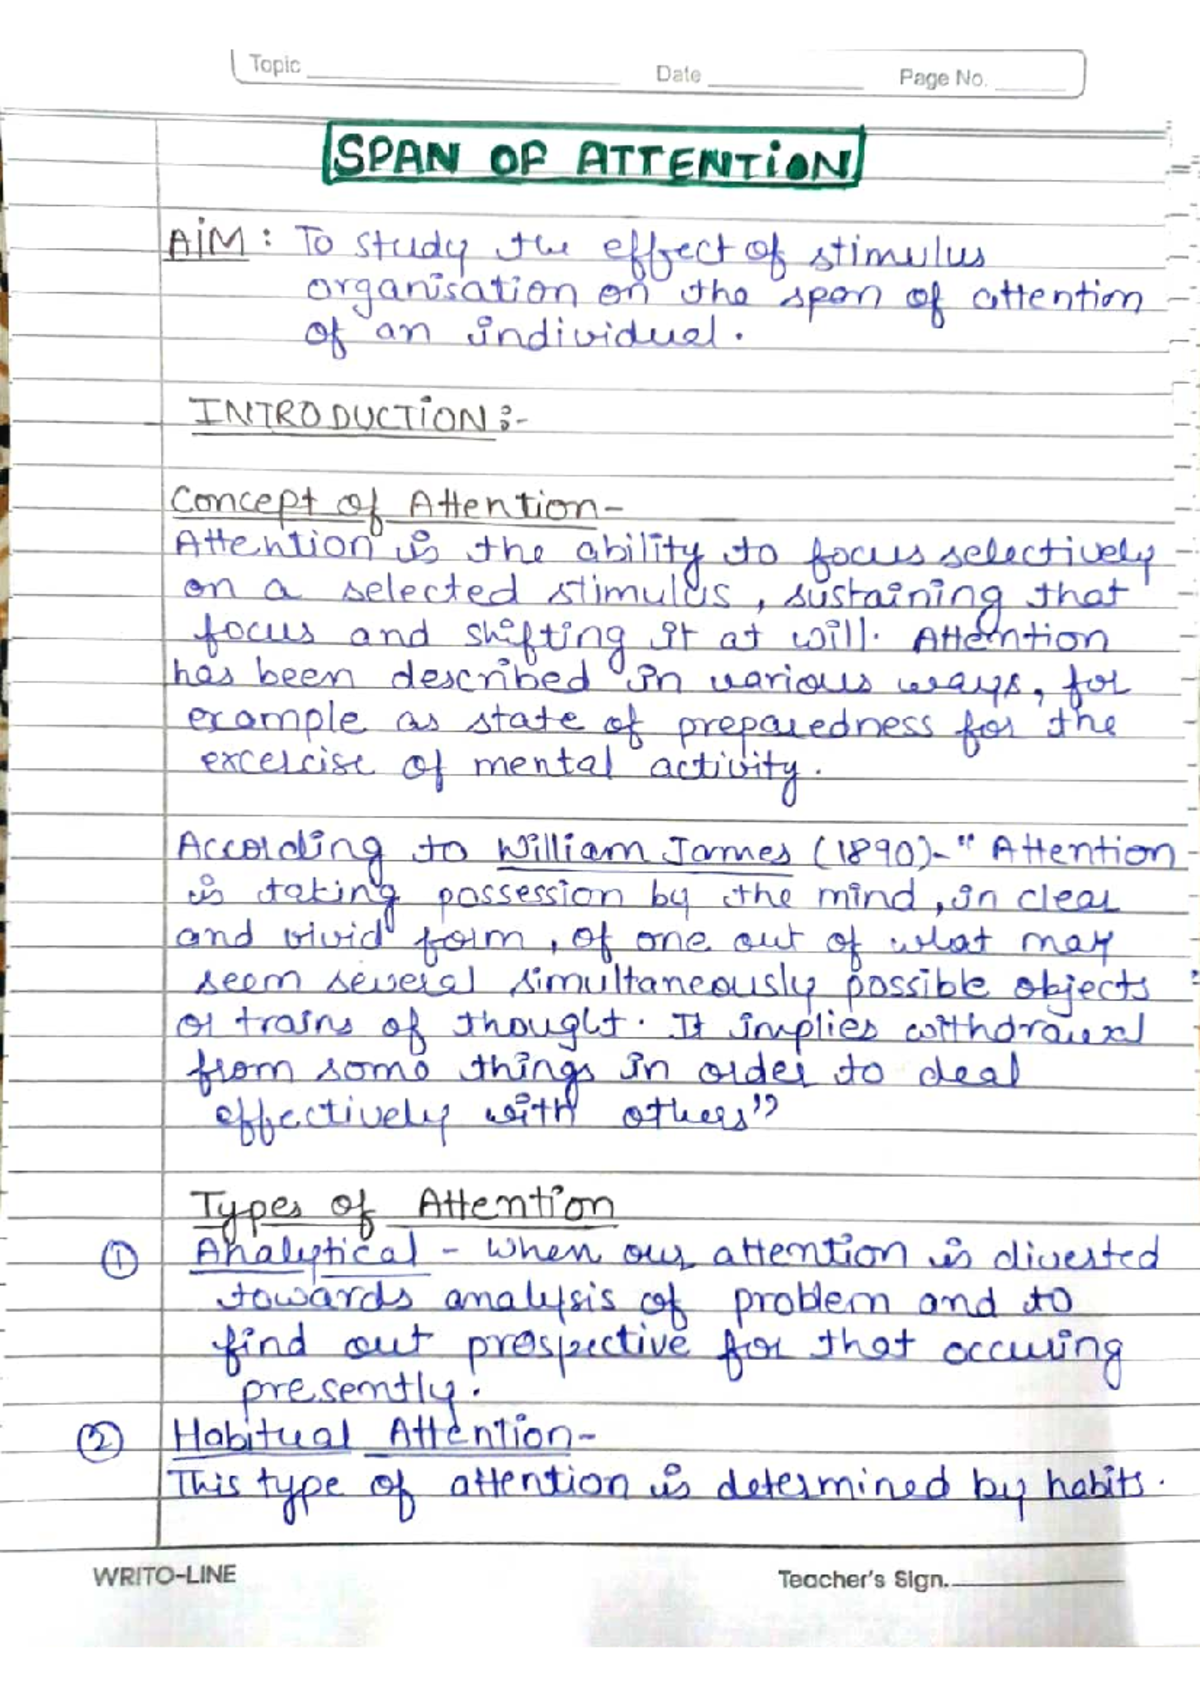 Topic
Date
Page No.
SPAN OF ATTENTiON
AiM : To study the effect of stimulus
organisation on the span of attention
of an individual.
INTRODUCTiON :-
Concept of Attention-
Attention is the ability to focus selectively
on a selected stimulus, sustaining that
focus and shifting it at will. Attention
has been described in various ways, for
example as state of preparedness for the
excercise of mental activity.
According to William James (1890)- "Attention
is taking possession by the mind, in clear
and vivid form, of one out of what may
seem several simultaneously possible objects
or trains of thought. It implies withdrawal
from some things in order to deal
effectively with others"
Types of Attention
① Analytical - When our attention is diverted
towards analysis of problem and to
find out prospective for that occuring
presently.
② Habitual Attention-
This type of attention is determined by habits.
WRITO-LINE
Teacher's Sign.